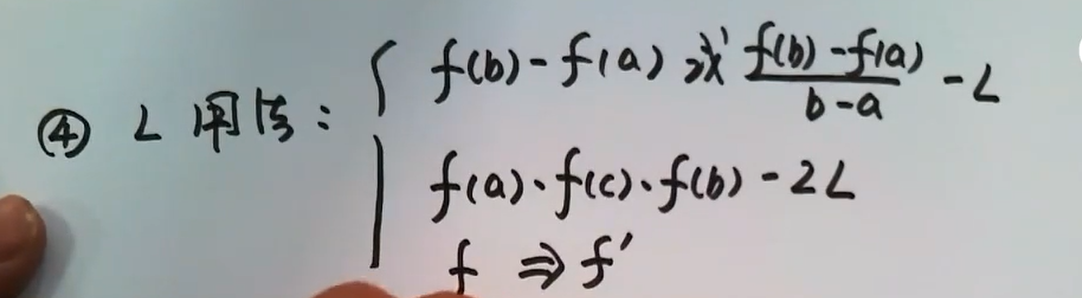 ④ L 用法: { f(b) - f(a) 或 \frac{f(b) - f(a)}{b - a} - L
f(a)、f(c)、f(b) - 2L
f ⇒ f'